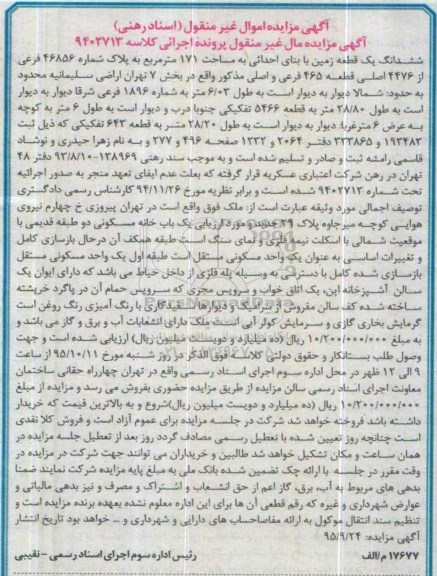 آگهی مزایده اموال غیر منقول (اسناد رهنی)
آگهی مزایده مال غیر منقول پرونده اجرائی کلاسه ۹۴۰۲۷۱۳
ششدانگ یک قطعه زمین با بنای احداثی به مساحت ۱۷۱ مترمربع به پلاک شماره ۴۶۸۵۶ فرعی
از ۴۴۷۶ اصلی قطعه ۴۶۵ فرعی و اصلی مذکور واقع در بخش ۷ تهران اراضی سلیمانیه محدود
به حدود: شمالا دیوار به دیوار است به طول ۶/۰۳ متر به شماره ۱۸۹۶ فرعی شرقا دیوار به دیوار
است به طول ۲۸/۸۰ متر به قطعه ۵۴۶۶ تفکیکی جنوبا درب و دیوار است به طول ۶ متر به کوچه
به عرض ۶ متر غربا: دیوار به دیوار است به طول ۲۸/۲۰ متر به قطعه ۶۴۳ تفکیکی که ذیل ثبت
۱۹۳۴۸۲ و ۳۳۳۸۶۵ دفتر ۲۰۶۴ و ۱۲۳۲ صفحه ۴۹۶ و ۲۷۷ و به نام زهرا حیدری و نوشاد
قاسمی رامشه ثبت و صادر و تسلیم شده است و به موجب سند رهنی ۱۳۸۹۶۹-۹۳/۸/۱۰ دفتر ۴۸
تهران در رهن شرکت اعتباری عسکریه قرار گرفته که بعلت عدم ایفای تعهد منجر به صدور اجرائیه
تحت شماره ۹۴۰۲۷۱۳ شده است و برابر نظریه مورخ ۹۴/۱۱/۲۶ کارشناس رسمی دادگستری
توصیف اجمالی مورد وثیقه عبارت است از: ملک فوق واقع است در تهران پیروزی خ چهارم نیروی
هوایی کوچه میرجاوه پلاک ۲۹ ششدانگ مورد ارزیابی یک باب خانه مسکونی دو طبقه قدیمی با
موقعیت شمالی با اسکلت نیمه فلزی و نمای سنگ است طبقه همکف آن درحال بازسازی کامل
و تغییرات اساسی به عنوان یک واحد مسکونی مستقل است طبقه اول یک واحد مسکونی مستقل
بازسازی شده کامل با دسترسی به وسیله پله فلزی از داخل حیاط می باشد که دارای ایوان یک
سالن آشپزخانه اپن، یک اتاق خواب و سرویس مجزی که سرویس حمام آن در پاگرد خرپشته
ساخته شده کف سالن مفروش از سرامیک و دیوارها سفیدکاری با رنگ آمیزی رنگ روغن است
گرمایش بخاری گازی و سرمایش کولر آبی است ملک دارای انشعابات آب و برق و گاز می باشد و
به مبلغ ۱۰/۲۰۰/۰۰۰/۰۰۰ ریال (ده میلیارد و دویست میلیون ریال) ارزیابی شده است و جهت
وصول طلب بستانکار و حقوق دولتی کلاسه فوق الذکر در روز شنبه مورخ ۹۵/۱۰/۱۱ از ساعت
۹ الی ۱۲ ظهر در محل اداره سوم اجرای اسناد رسمی واقع در تهران چهارراه حقانی ساختمان
معاونت اجرای اسناد رسمی سالن مزایده از طریق مزایده حضوری بفروش می رسد و مزایده از مبلغ
۱۰/۲۰۰/۰۰۰/۰۰۰ ریال (ده میلیارد و دویست میلیون ریال)شروع و به بالاترین قیمت که خریدار
داشته باشد فروخته خواهد شد شرکت در جلسه مزایده برای عموم آزاد است و فروش کلا نقدی
است چنانچه روز تعیین شده با تعطیل رسمی مصادف گردد روز بعد از تعطیل جلسه مزایده در
همان ساعت و مکان تشکیل خواهد شد طالبین و خریداران می توانند جهت شرکت در مزایده در
وقت مقرر در جلسه با ارائه چک تضمین شده بانک ملی به مبلغ پایه مزایده شرکت نمایند ضمنا
بدهی های مربوط به آب، برق، گاز اعم از حق انشعاب و اشتراک و مصرف و نیز بدهی مالیاتی و
عوارض شهرداری و غیره که رقم قطعی آن ها برای این اداره معلوم نشده بعهده برنده مزایده است و
تنظیم سند انتقال موکول به ارائه مفاصاحساب های دارایی و شهرداری و ... خواهد بود تاریخ انتشار
آگهی مزایده: ۹۵/۹/۲۴
۱۷۶۷۷ م/الف رئیس اداره سوم اجرای اسناد رسمی - نقیبی